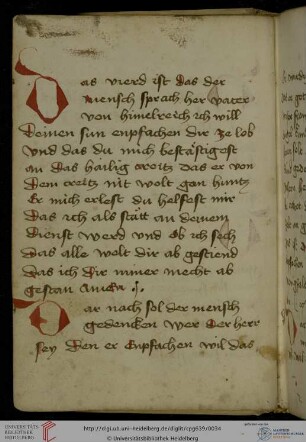 Das vierd ist das der
mensch sprach her vater
von himelreich ich will
deinen sun enpfachen dir ze lob
vnd das du mich bestätigest
an das hailig creitz das er von
dem creitz nit wolt gan huntz
Er mich erlest du helfest mir
das ich als stätt an deinem
dienst werd vnd ob ich sech
das alle welt dir ab gestiend
das ich dir nimer mecht ab
gestan Amen
Dar nach sol der mensch
gedencken wer der herr
sey den er Enpfachen wil das
UNIVERSITÄTS-
BIBLIOTHEK
HEIDELBERG
http://digi.ub.uni-heidelberg.de/diglit/cpg639/0034
© Universitätsbibliothek Heidelberg